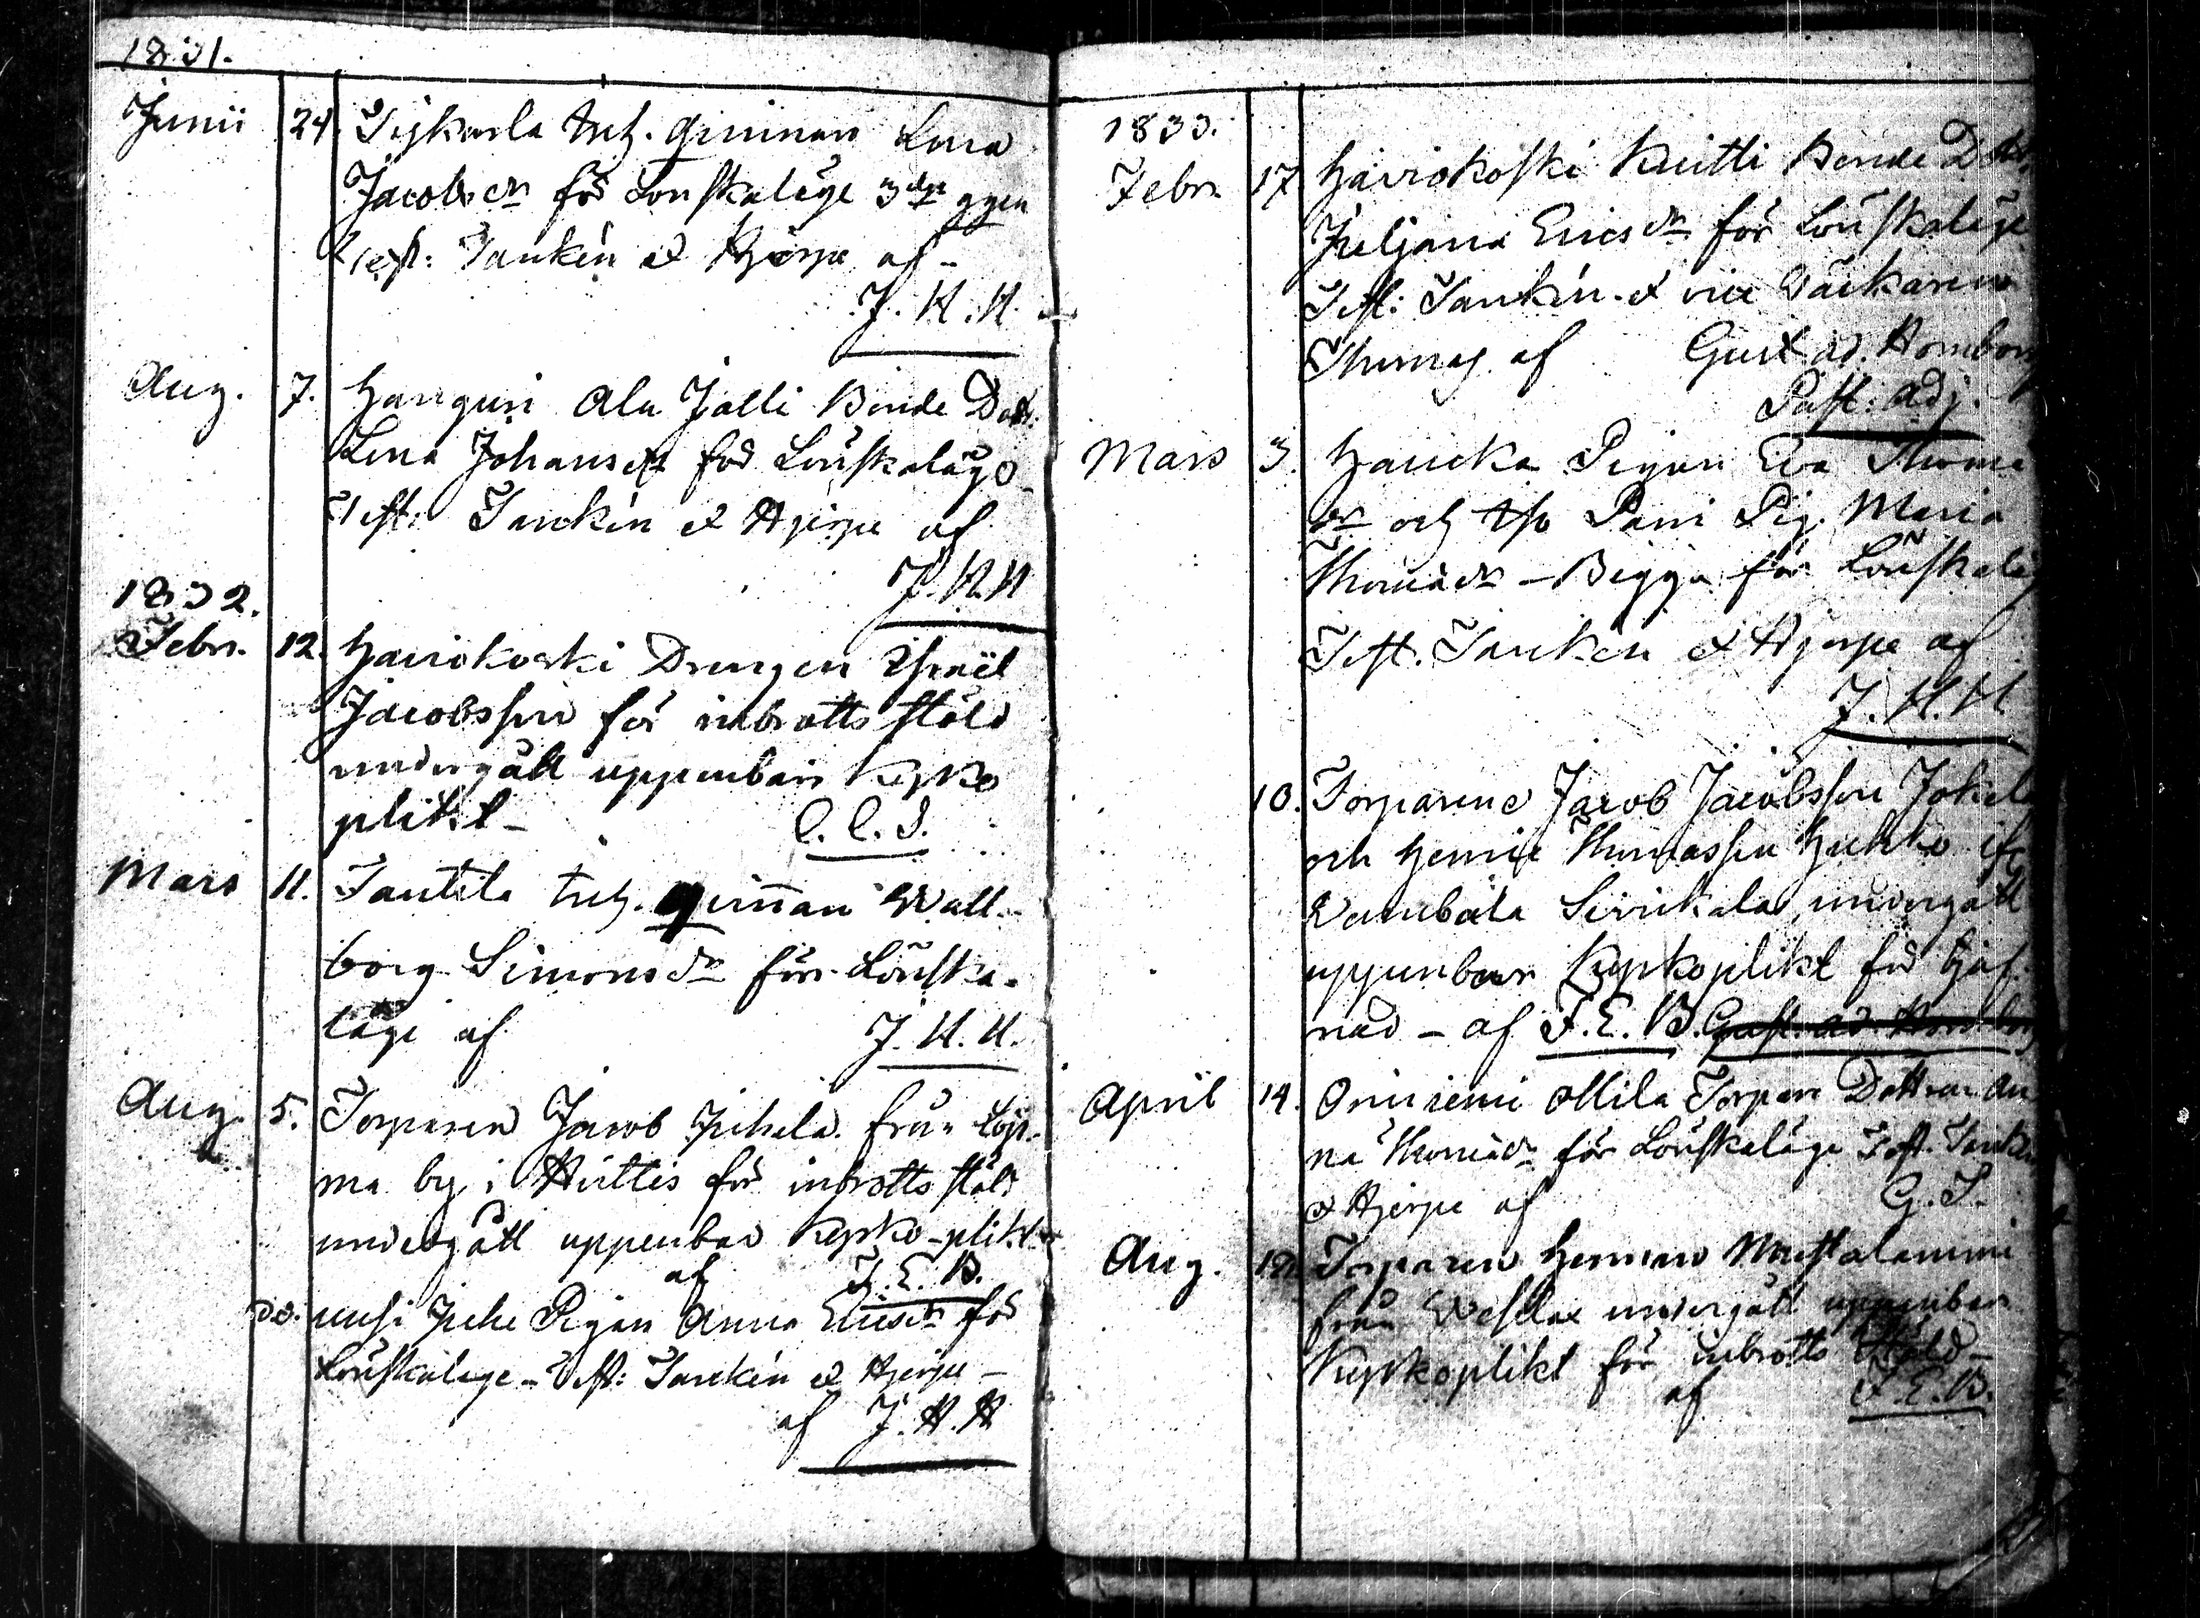 1831.
Junii 24. Sijkarla Inh. qvinnan Lena
Jacobsdr för Lönskaläge 3dje ggen
Test: Tanckén et Hjerpe af –
J. H. H.
Aug. 7. Hanguri Ala Jalli Bonde Dott.
Lena Johansdr för Lönskaläge
Test: Tanckén et Hjerpe af
J. H. H
1832.
Febr. 12. Haviokoski Drengen Israël
Jacobsson för inbrotts stöld
undergått uppenbar kyrko
plikt – C. C. S.
Mars 11. Tantila Inh. qvinnan Wall-
borg Simonsdr för Lönska-
läge af J. H. H.
Aug. 5. Torparen Jacob Juhala från
ma by i Huittis för inbrotts stöld
undergått uppenbar kyrko-plikt
af F. E. B.
do. uusi Juhe Pigan Anna Ericsdr för
Lönskaläge – Test: Tanckén et Hjerpe –
af J. H. H
1833.
Febr. 17. Haviokoski Knitti Bonde Dott.
Juljana Ericsdr för Lönskaläge
Test: Tanckén et vice Väckaren
Thomas af Gust. ad. Homborg
Past: adj.
Mars 3. Haucka Pigan Eva Thomæ
dr och Pani Pig. Maria
Thomædr – Begge för Lönskaläge
Test. Tanckén et Hjerpe af
J. H. H.
10. Torparene Jacob Jacobsson
och Henric Thomasson Huhko ifr
undergått
uppenbar Kyrkoplikt för tjuf-
nad – af F. E. B. Gust. ad. Homborg
April 14. Onniemi Mila Torpare Dottran An
na Thomædr för Lönskaläge Test. Tanckén
et Hjerpe af G. S.
Aug. 18. Torparen Herman Mustalammi
från undergått uppenbar
Kyrkoplikt för inbrotts stöld –
af F. E. B.